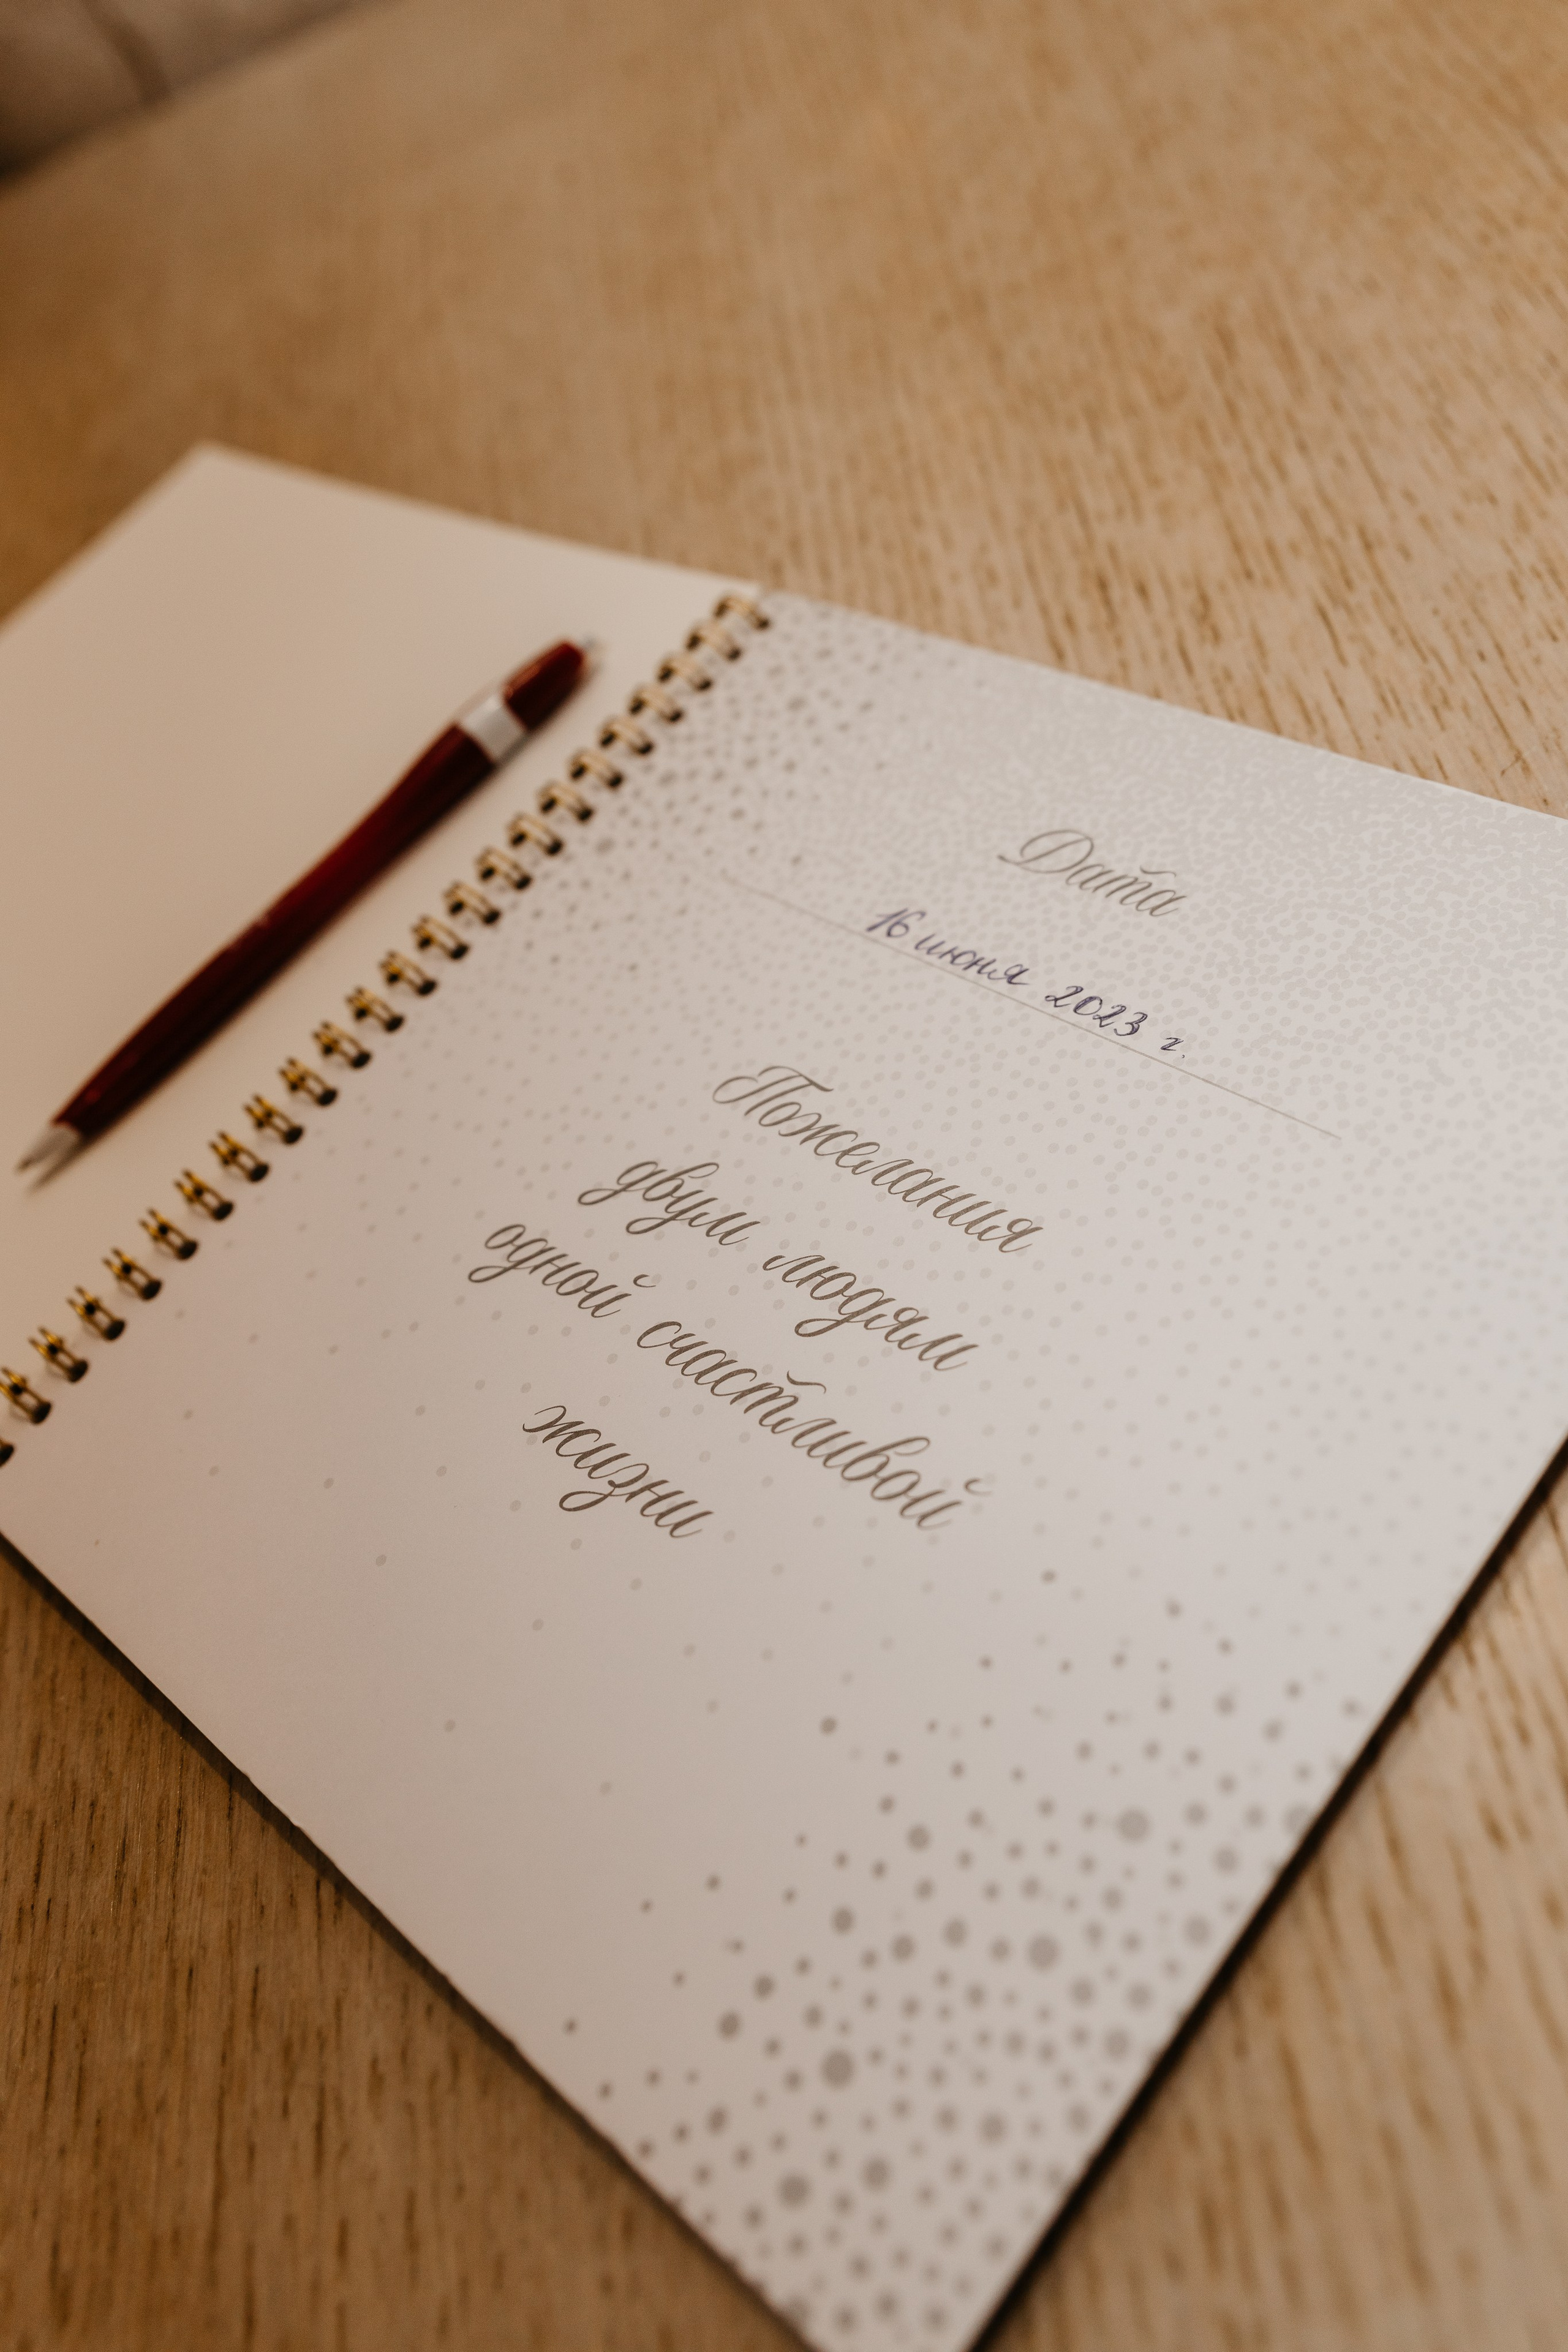 Дата
16 июня 2023 г.
Пожелания
двум людям
одной счастливой
жизни